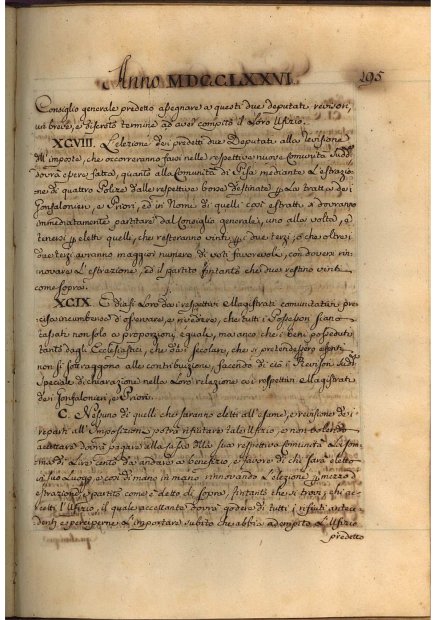 Anno MDCCLXXVI.
295
Consiglio generale predetto assegnare a questi due deputati, revisori,
un breve, e discreto termine ad aver compito il loro Ufizio.
XCVIII. L'elezione dei predetti due Deputati alla revisione
dell'imposte, che occorreranno farsi nelle respettive nuove comunità sudd.
dovrà essere fatta, quanto alla Comunità di Pisa mediante l'estrazio
ne di quattro Polize dalle respettive borse destinate p la tratta dei
Gonfalonieri, e Priori, ed i Nomi di quelli così estratti si dovranno
immediatamente partitare dal Consiglio generale, uno alla volta, e
tenersi p eletti quelli, che resteranno vinti p i due terzi, o che oltre i
due terzi avranno maggior numero di voti favorevoli, con doversi rin
novare l'estrazione, ed il partito fintanto che due restino vinti
come sopra.
XCIX. E dia si loro dai respettivi Magistrati comunitativi pre
cisa incumbenza di osservare, e rivedere, che tutti i Possessori siano
tassati non solo a proporzione eguale, ma anco che i beni posseduti
tanto dagli Ecclesiastici, che da' secolari, che si pretendessero esenti
non si sottraggono alle contribuzioni, facendo di ciò i Revisori sudd.
speciale dichiarazione nella loro relazione ai respettivi Magistrati
dei Gonfalonieri, e Priori.
C. Nessuno di quelli che saranno eletti all'esame, e revisione dei
reparti all'Imposizione potrà rifiutare tale Ufizio, e non volendo
accettare dovrà pagare alla Cassa della sua respettiva comunità la som
ma di Lire cento da andare a benefizio, e favore di chi sarà eletto
in suo luogo, e così di mano in mano rinnovando l'elezione p mezzo d'
estrazione, e partito come è detto di sopra, fintanto che si trovi chi ac
cetti l'Ufizio, il quale accettante dovrà godere di tutti i rifiuti antece
denti, e percipere l'importare subito che abbia adempito l'Ufizio
predetto